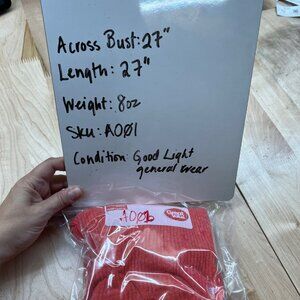 Across Bust: 27"
Length: 27"
Weight: 8oz
Sku: A001
Condition: Good Light
general wear